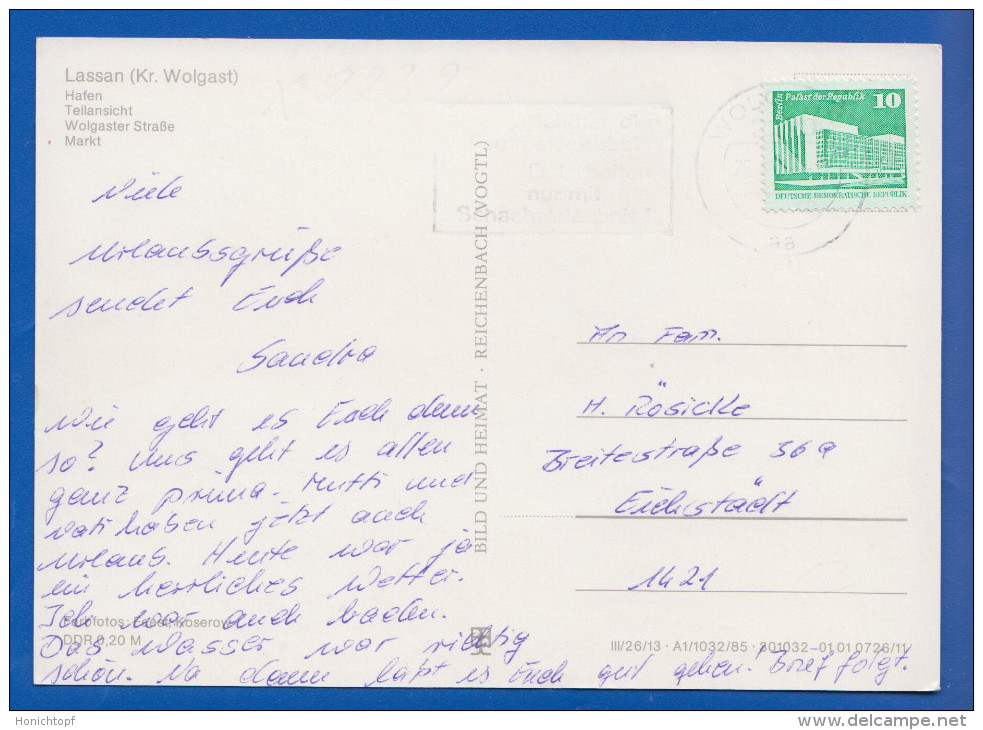 Lassan (Kr. Wolgast)
Hafen
Teilansicht
Wolgaster Straße
Markt
Berlin
Palast der Republik
10
DEUTSCHE DEMOKRATISCHE REPUBLIK
nur mit
BILD UND HEIMAT · REICHENBACH (VOGTL)
Viele
Urlaubsgrüße
sendet Euch
Sandra
Wie geht es Euch denn
so? Uns geht es allen
ganz prima. Mutti und
Vati haben jetzt auch
Urlaub. Heute war ja
ein herrliches Wetter.
Ich war auch baden.
Das Wasser war richtig
schön. Na dann laßt es Euch gut gehen! Brief folgt.
An Fam.
H. Rösicke
Breitestraße 36a
Eichstädt
1421
Farbfotos: Koserow
DDR 0,20 M
III/26/13 · A1/1032/85 · 301032-01 01 0726/11
Honichtopf
delcampe.net